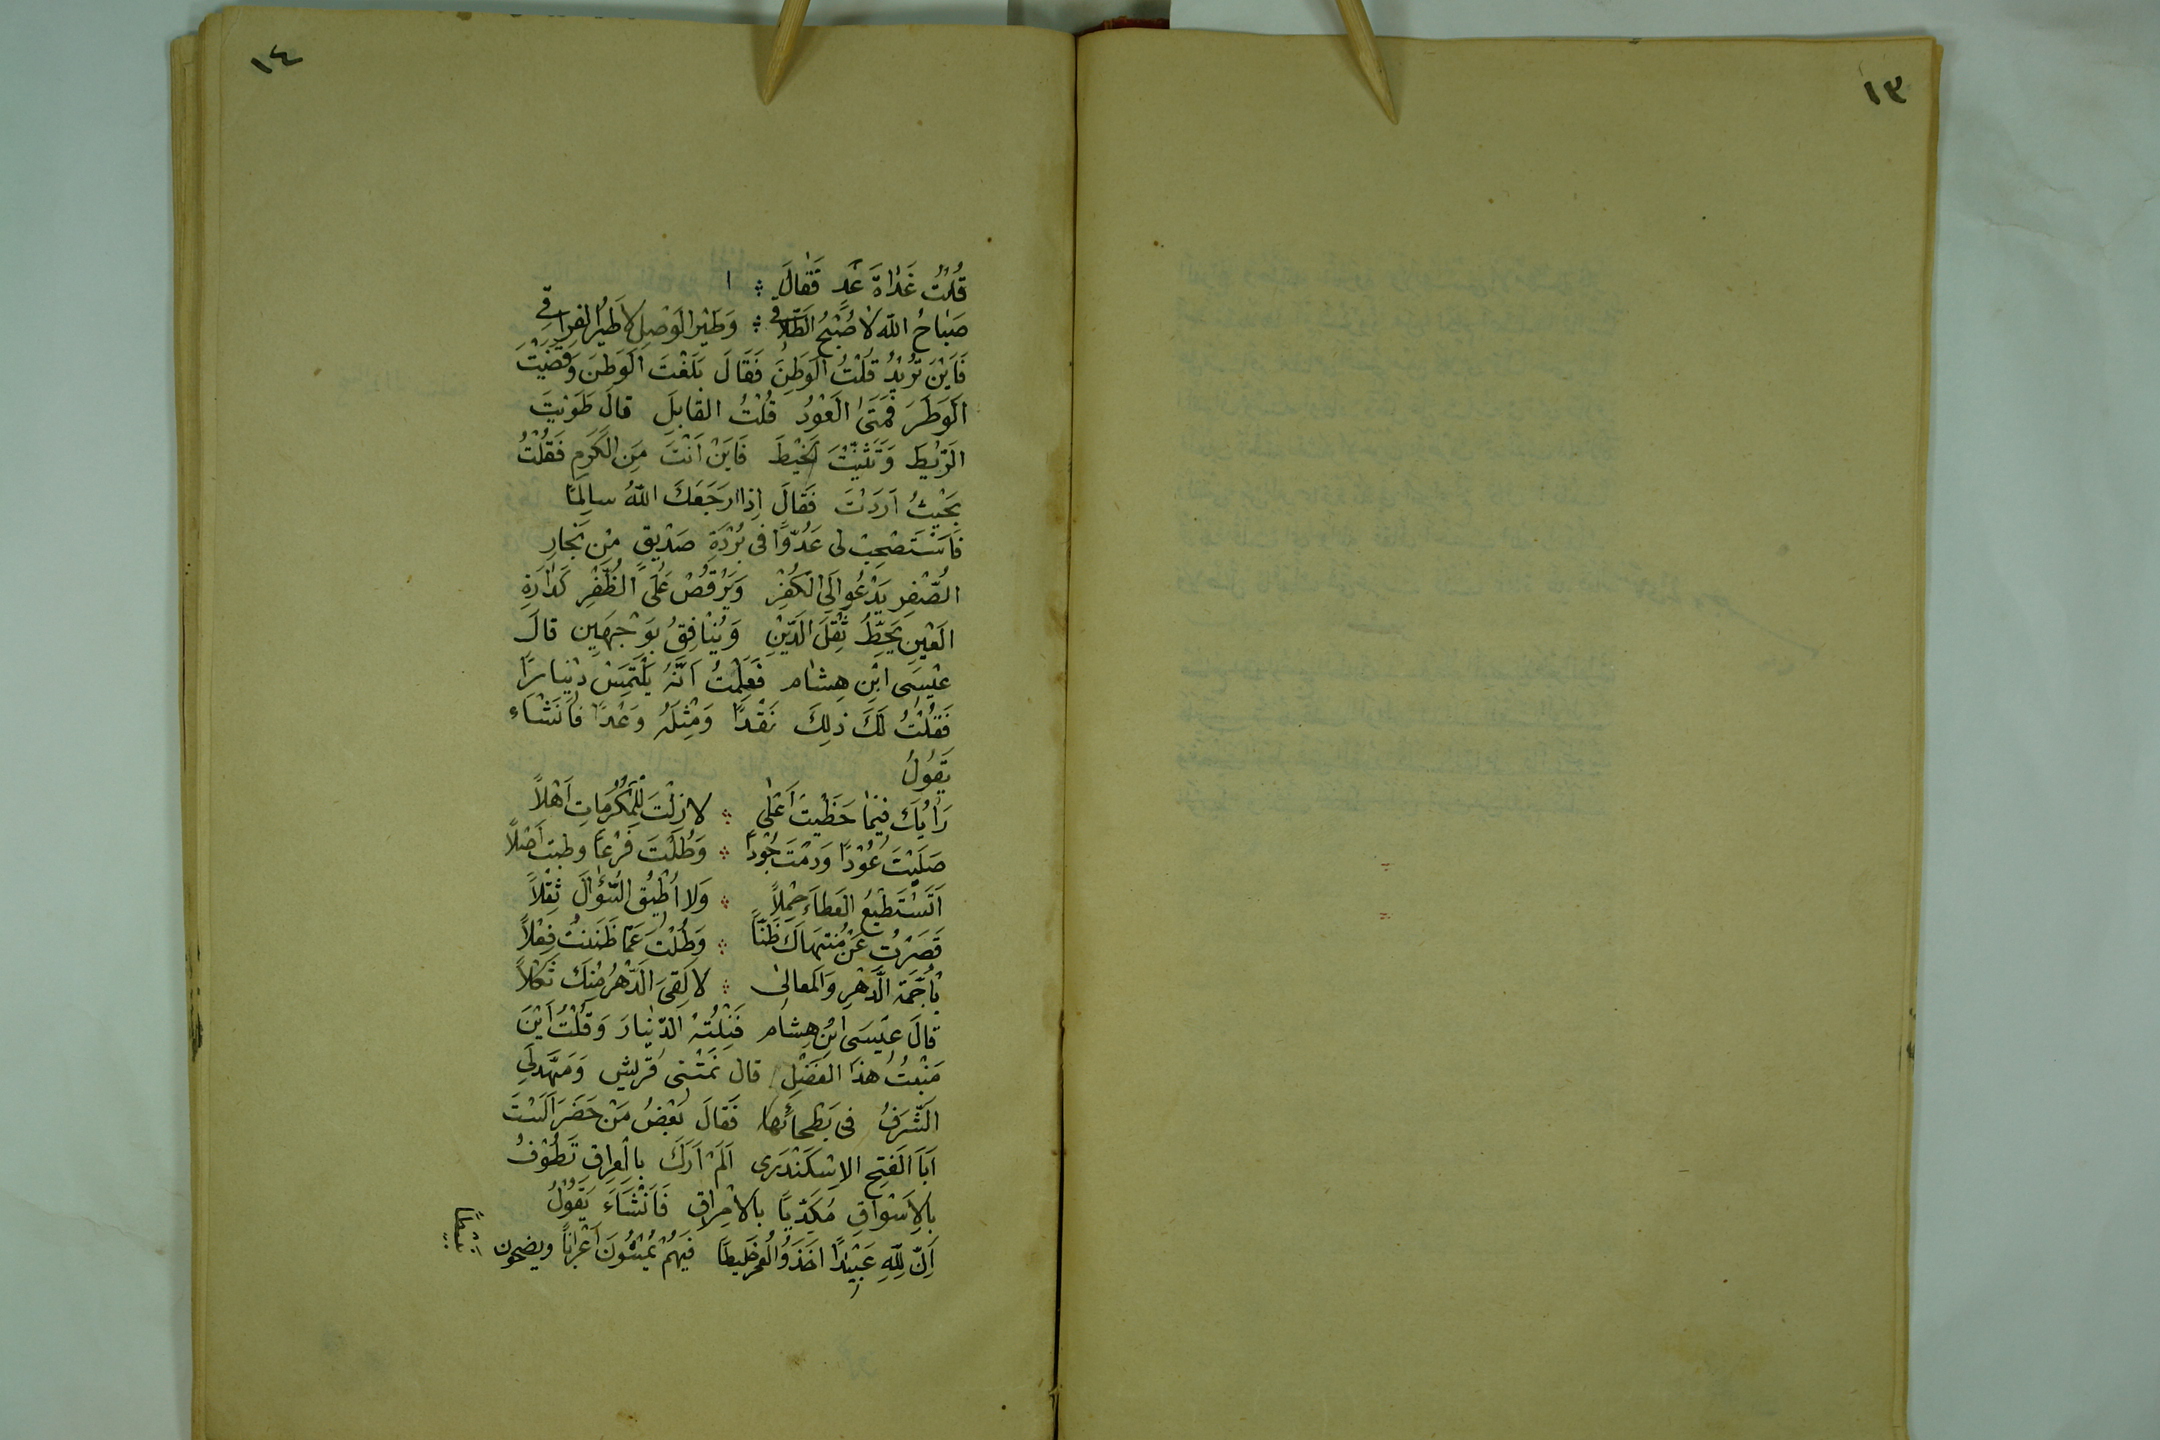 ١٣
١٤
قُلْتُ غَدَاةَ غَدٍ فَقَالَ ؞ ا
صَبَاحُ اللّٰه لَا صُبْحُ الطَّلاقِ ؞ وَطَيْرُ الوَصْلِ لا طَيْرُ الفِراقِ
فَاَيْنَ تُرِيْدُ قُلْتُ الوَطَنَ فَقَالَ بَلَغْتَ الْوَطَنَ وَقَضَيْتَ
الْوَطَرَ فَمَتَى الْعَوْدُ قُلْتُ القابِلَ قالَ طَوَيْتَ
الرَّيْطَ وَثَنَيْتَ الْخَيْطَ فَاَيْنَ اَنْتَ مِنَ الْكَرَمِ فَقُلْتُ
بِحَيْثُ اَرَدْتَ فَقَالَ اِذا ارَجَعَكَ اللّٰهُ سالِمًا
فَاسْتَصْحِبْ لى عَدُوًّا فى بُرْدَةِ صَدِيْقٍ مِنْ نَجَارِ
الصُّفْرِ يَدْعُو اِلَى الْكُفْرِ وَيَرْقُصُ عَلَى الظُّفْرِ كَدَارَةِ
الْعَيْنِ يَحِطُّ ثِقْلَ الدَّيْنِ وَيُنَافِقُ بِوَجْهَيْنِ قالَ
عِيْسَى ابْنِ هِشام فَعَلِمْتُ اَنَّهُ يَلْتَمِسُ دِيْنَارًا
فَقُلْتُ لَكَ ذلِكَ نَقْدًا وَمِثْلَهُ وَعْدًا فَاَنْشَاء
يَقُولُ
رَاْيُكَ فِيْمَا حَظَيْتَ اَعْلٰى ؞ لا زِلْتَ لِلْمَكْرُمَاتِ اَهْلاً
صَلَيْتَ عُوْدًا وَدمْتَ جُوْدًا ؞ وَطُلْتَ فَرْعًا وطبت اَصْلاً
اَتَسْتَطِيْعُ الْعَطاءَ حِمْلاً ؞ وَلا اُطِيْقُ السُّؤَالَ ثِقْلاً
قَصَرْتُ عَنْ مُنْتَهَاكَ ظَنًّا ؞ وَطُلْتُ عَمّا ظَنَنتُ فِعْلاً
يا رُجْمَةَ الدَّهْرِ وَالْمَعالِى ؞ لا لَقِىَ الدَّهْرُ مِنْكَ ثَكْلاً
قالَ عِيْسَى ابْنِ هِشام فَنِلْتُهُ الدِّيْنارَ وَقُلْتُ اَيْنَ
مَنْبتُ هذَا الفَضْلِ قال نَمَتْنى قُرَيْش وَمَهَّدَ لِى
الشَّرَفُ فى بَطْحائِها فَقالَ بَعْضُ مَنْ حَضَرَ اَلَسْتَ
اَبَا الْفَتْحِ الاِسْكَنْدَرى اَلَمْ اَرَكَ بِالْعِراقِ تَطُوْفُ
بِالاَسْوَاقِ مُكَدِّيًا بالاَوْراقِ فَاَنْشَاءَ يَقُوْلُ
اِنَّ لِلّٰهِ عَبِيْدًا اَخَذُوا الْعُمْرَ خَلِيطَا فَهُمْ يُمْسُونَ اَعْرَابًا ويضحون
نبيطاً